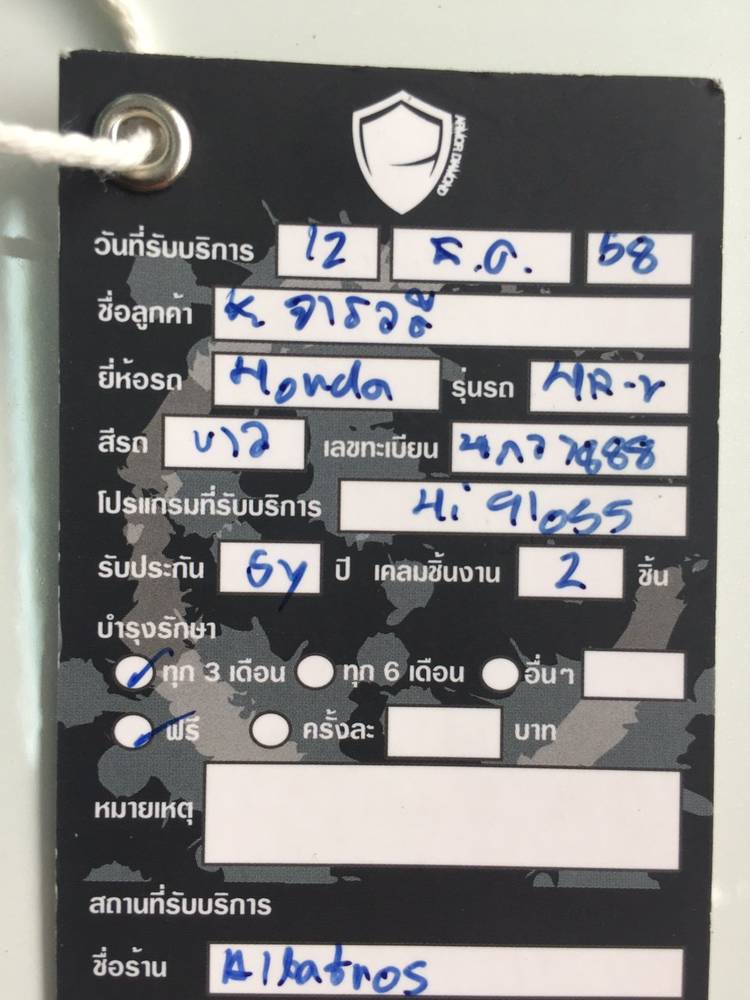 ARMOR DIAMOND
วันที่รับบริการ 12 ธ.ค. 58
ชื่อลูกค้า K จารวี
ยี่ห้อรถ Honda รุ่นรถ HR-V
สีรถ ขาว เลขทะเบียน
โปรแกรมที่รับบริการ Hi gloss
รับประกัน 5y ปี เคลมชิ้นงาน 2 ชิ้น
บำรุงรักษา
ทุก 3 เดือน ทุก 6 เดือน อื่นๆ
ฟรี ครั้งละ บาท
หมายเหตุ
สถานที่รับบริการ
ชื่อร้าน Albatros